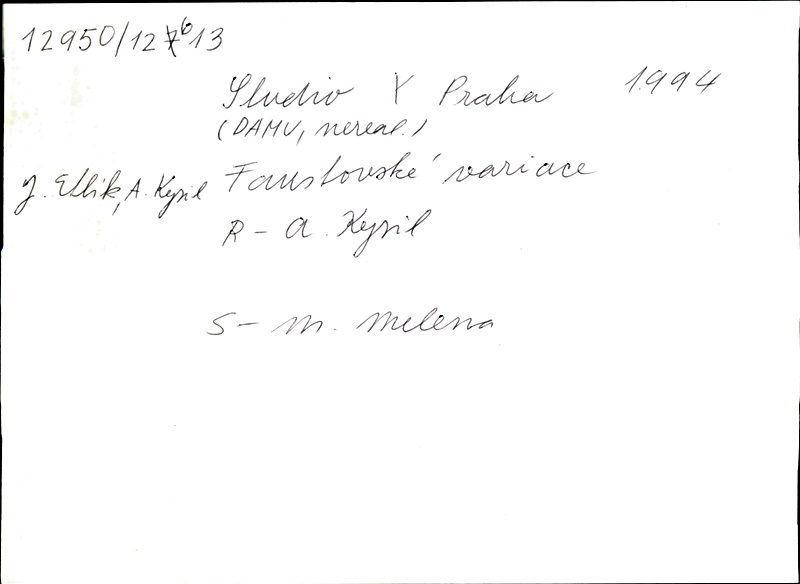 12950/12613
Studio Y Praha 1994
(DAMU, nereal.)
J. Etlík, A. Kysil Faustovské variace
R - A. Kysil
S - M. Melena